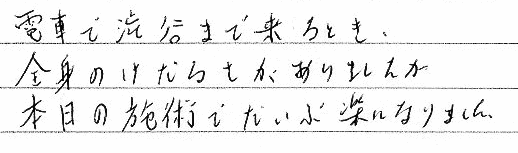 電車で渋谷まで来るとき、
全身のけだるさがありましたが
本日の施術でだいぶ楽になりました。